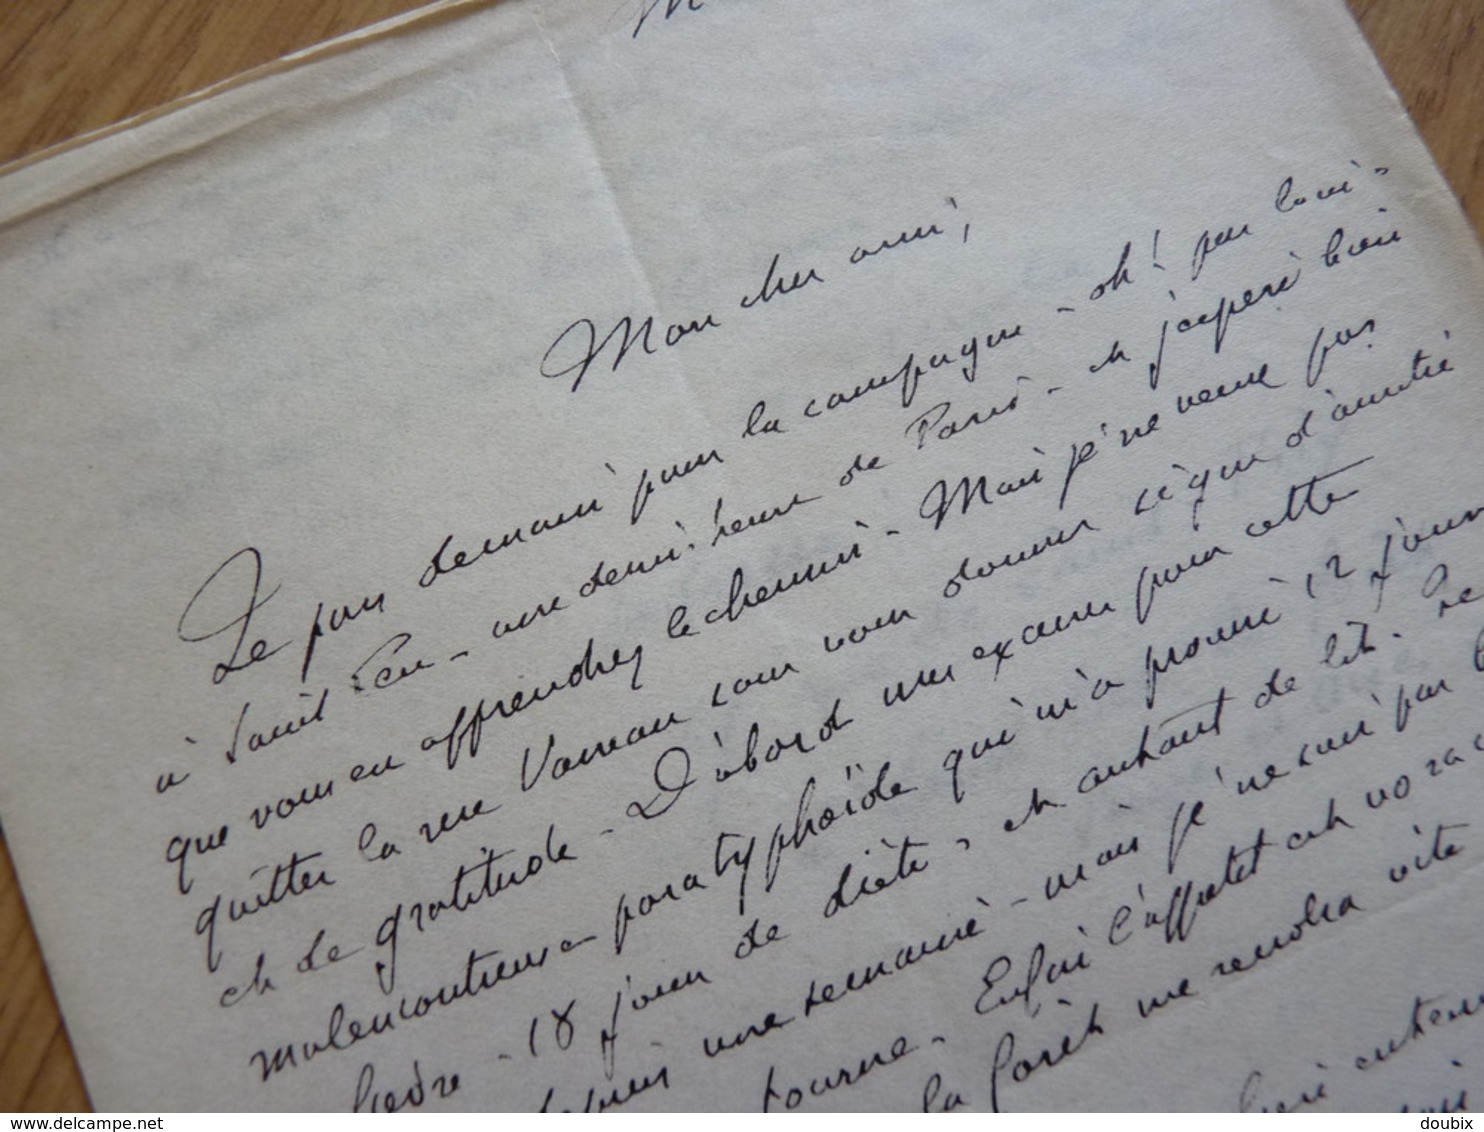 M
Mon cher ami,
Je pars demain pour la campagne - oh! pas loin -
à Saint Leu - une demi-heure de Paris - et j'espère bien
que vous en apprendrez le chemin - Mais je ne veux pas
quitter la rue Vaneau sans vous donner signe d'amitié
et de gratitude - D'abord mes excuses pour cette
malencontreuse paratyphoïde qui m'a promis 12 jours
fièvre - 18 jours de diète - et autant de lit. Je
depuis une semaine - mais je ne suis pas
tourne - Enfin l'appétit est vorac
la forêt me rendra vite
www.delcampe.net
doubix